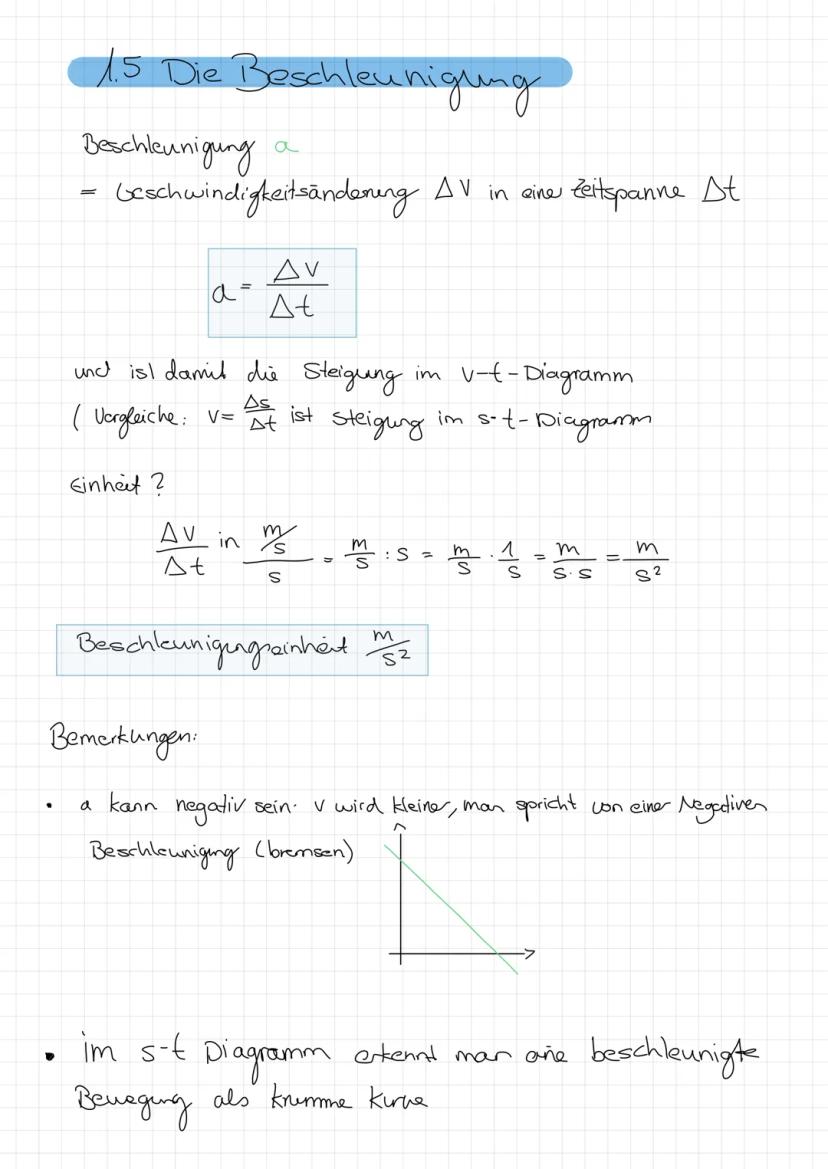 1.5 Die Beschleunigung
Beschleunigung a
= Geschwindigkeitsänderung ΔV in einer Zeitspanne Δt
a = ΔV/Δt
und ist damit die Steigung im v-t-Diagramm
( Vergleiche: V= Δs/Δt ist Steigung im s-t-Diagramm
Einheit ?
ΔV/Δt in m/s/s = m/s : s = m/s · 1/s = m/s·s = m/s²
Beschleunigungseinheit m/s²
Bemerkungen:
• a kann negativ sein. v wird kleiner, man spricht von einer Negativen
Beschleunigung (bremsen)
• im s-t Diagramm erkennt man eine beschleunigte
Bewegung als krumme Kurve